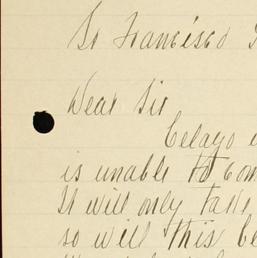 Sn Francisco
Dear Sir
is unable to com
It will only take
so will this be